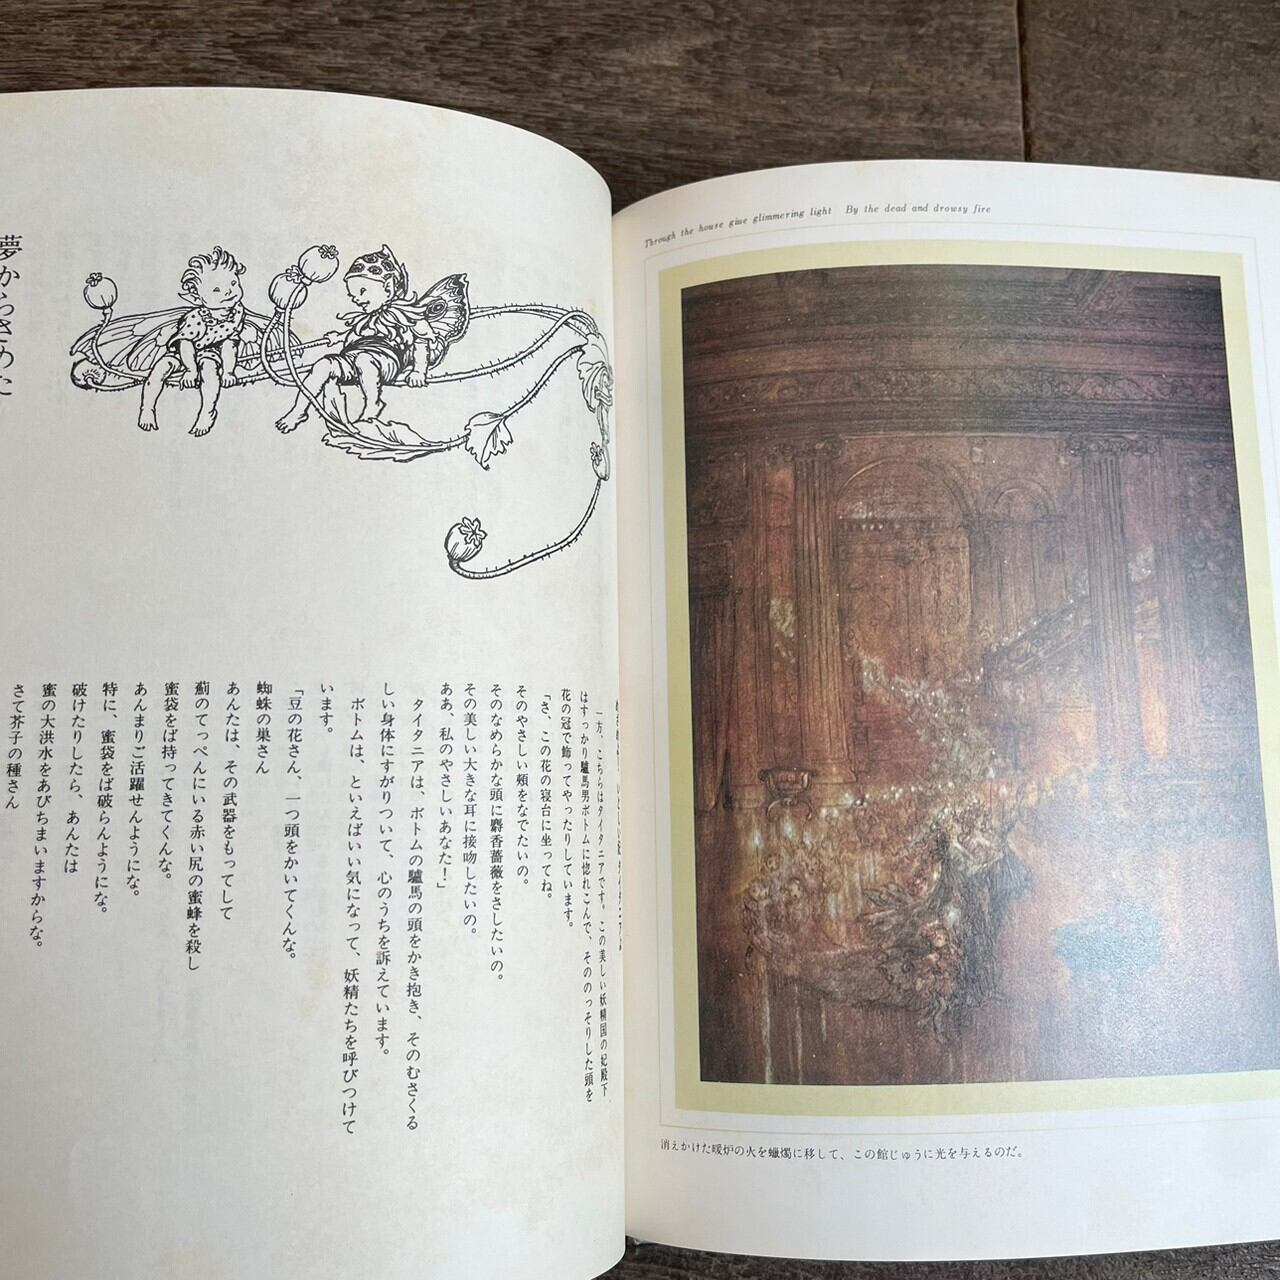 夢からさめた
一方、こちらはタイタニアです。この美しい妖精国の妃殿下
はすっかり驢馬男ボトムに惚れこんで、そののっそりした頭を
花の冠で飾ってやったりしています。
「さ、この花の寝台に坐ってね。
そのやさしい頰をなでたいの。
そのなめらかな頭に麝香薔薇をさしたいの。
その美しい大きな耳に接吻したいの。
ああ、私のやさしいあなた!」
タイタニアは、ボトムの驢馬の頭をかき抱き、そのむさくる
しい身体にすがりついて、心のうちを訴えています。
ボトムは、といえばいい気になって、妖精たちを呼びつけて
います。
「豆の花さん、一つ頭をかいてくんな。
蜘蛛の巣さん
あんたは、その武器をもってして
薊のてっぺんにいる赤い尻の蜜蜂を殺し
蜜袋をば持ってきてくんな。
あんまりご活躍せんようにな。
特に、蜜袋をば破らんようにな。
破けたりしたら、あんたは
蜜の大洪水をあびちまいますからな。
さて芥子の種さん
Through the house giue glimmering light By the dead and drowsy fire
消えかけた暖炉の火を蠟燭に移して、この館じゅうに光を与えるのだ。